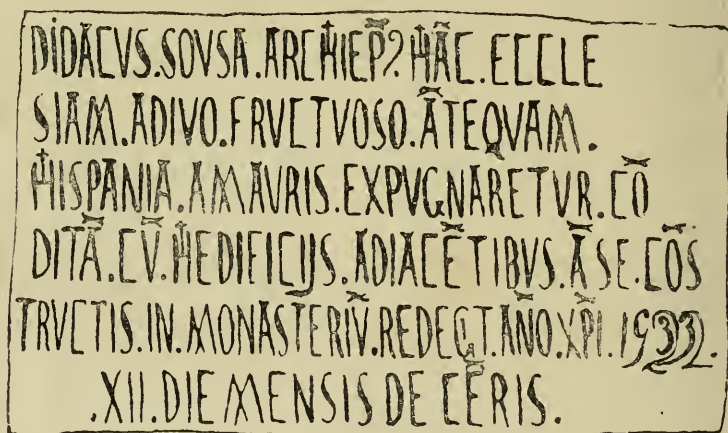 DIDACVS.SOVSA.ARCHIEP̄? HĀC.ECCLE
SIAM.ADIVO.FRVCTVOSO.ĀTEQVAM.
HISPANIA.AMAVRIS.EXPVGNARETVR.CŌ
DITĀ.CV̄.HEDIFICIJS.ADIACĒTIBVS.Ā SE.CŌS
TRVCTIS.IN.MONASTERIV̄.REDEGIT.AN̄O.XP̄I.
.XII.DIE MENSIS DE CĒRIS.